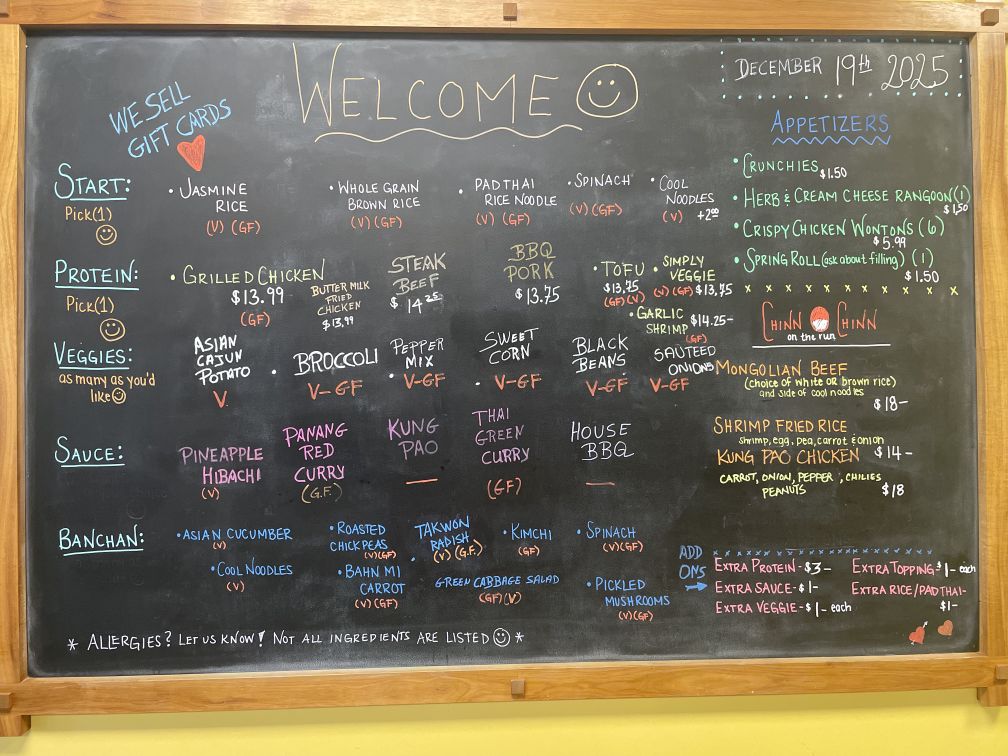 WELCOME
DECEMBER 19th 2025
WE SELL
GIFT CARDS
START:
Pick(1)
• JASMINE
RICE
(V) (GF)
• WHOLE GRAIN
BROWN RICE
(V) (GF)
• PAD THAI
RICE NOODLE
(V) (GF)
• SPINACH
(V) (GF)
• COOL
NOODLES
(V) +2.00
PROTEIN:
Pick(1)
• GRILLED CHICKEN
$13.99
(GF)
BUTTER MILK
FRIED
CHICKEN
$13.99
STEAK
BEEF
$14.25
BBQ
PORK
$13.75
• TOFU
$13.75
(GF)(V)
• SIMPLY
VEGGIE
(V) (GF) $13.75
• GARLIC
SHRIMP $14.25-
(GF)
VEGGIES:
as many as you'd
like
ASIAN
CAJUN
POTATO
V
• BROCCOLI
V-GF
PEPPER
MIX
• V-GF
SWEET
CORN
• V-GF
BLACK
BEANS
V-GF
SAUTEED
ONIONS
V-GF
SAUCE:
PINEAPPLE
HIBACHI
(V)
PANANG
RED
CURRY
(G.F.)
KUNG
PAO
—
THAI
GREEN
CURRY
(GF)
HOUSE
BBQ
—
BANCHAN:
• ASIAN CUCUMBER
(V)
• COOL NOODLES
(V)
• ROASTED
CHICKPEAS
(V)(GF)
• BAHN MI
CARROT
(V)(GF)
• TAKWON
RADISH
(V) (G.F.)
GREEN CABBAGE SALAD
(GF)(V)
• KIMCHI
(GF)
• SPINACH
(V)(GF)
• PICKLED
MUSHROOMS
(V)(GF)
* ALLERGIES? LET US KNOW! NOT ALL INGREDIENTS ARE LISTED *
APPETIZERS
• CRUNCHIES $1.50
• HERB & CREAM CHEESE RANGOON (1)
$1.50
• CRISPY CHICKEN WONTONS (6)
$5.99
• SPRING ROLL (ask about filling) (1)
$1.50
x x x x x x x x x x x x
CHINN CHINN
on the run
MONGOLIAN BEEF
(choice of white OR brown rice)
and side of cool noodles
$18-
SHRIMP FRIED RICE
shrimp, egg, pea, carrot & onion
$14-
KUNG PAO CHICKEN
CARROT, ONION, PEPPER, CHILIES
PEANUTS
$18
ADD
ONS
EXTRA PROTEIN-$3-
EXTRA SAUCE-$1-
EXTRA VEGGIE-$1- each
EXTRA TOPPING-$1- each
EXTRA RICE/PAD THAI-
$1-